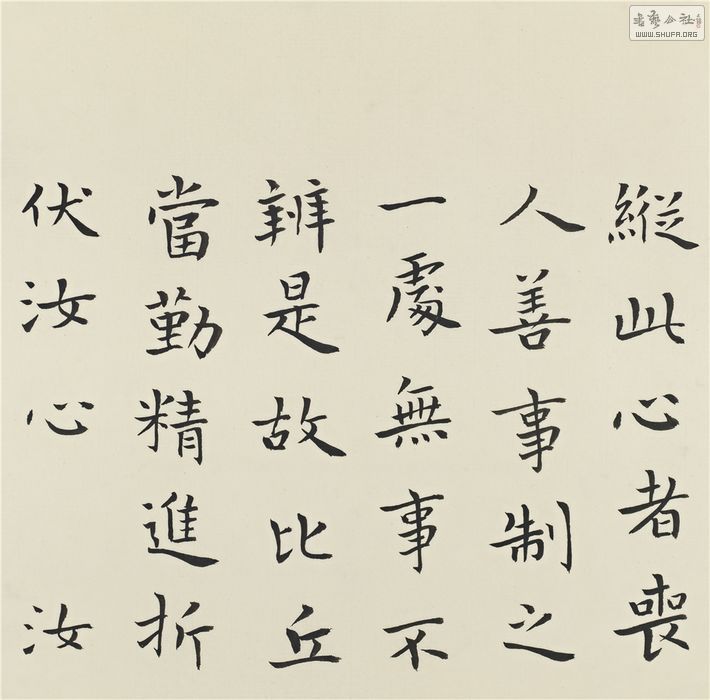 縱此心者喪
人善事制之
一處無事不
辦是故比丘
當勤精進折
伏汝心 汝
書藝公社
WWW.SHUFA.ORG